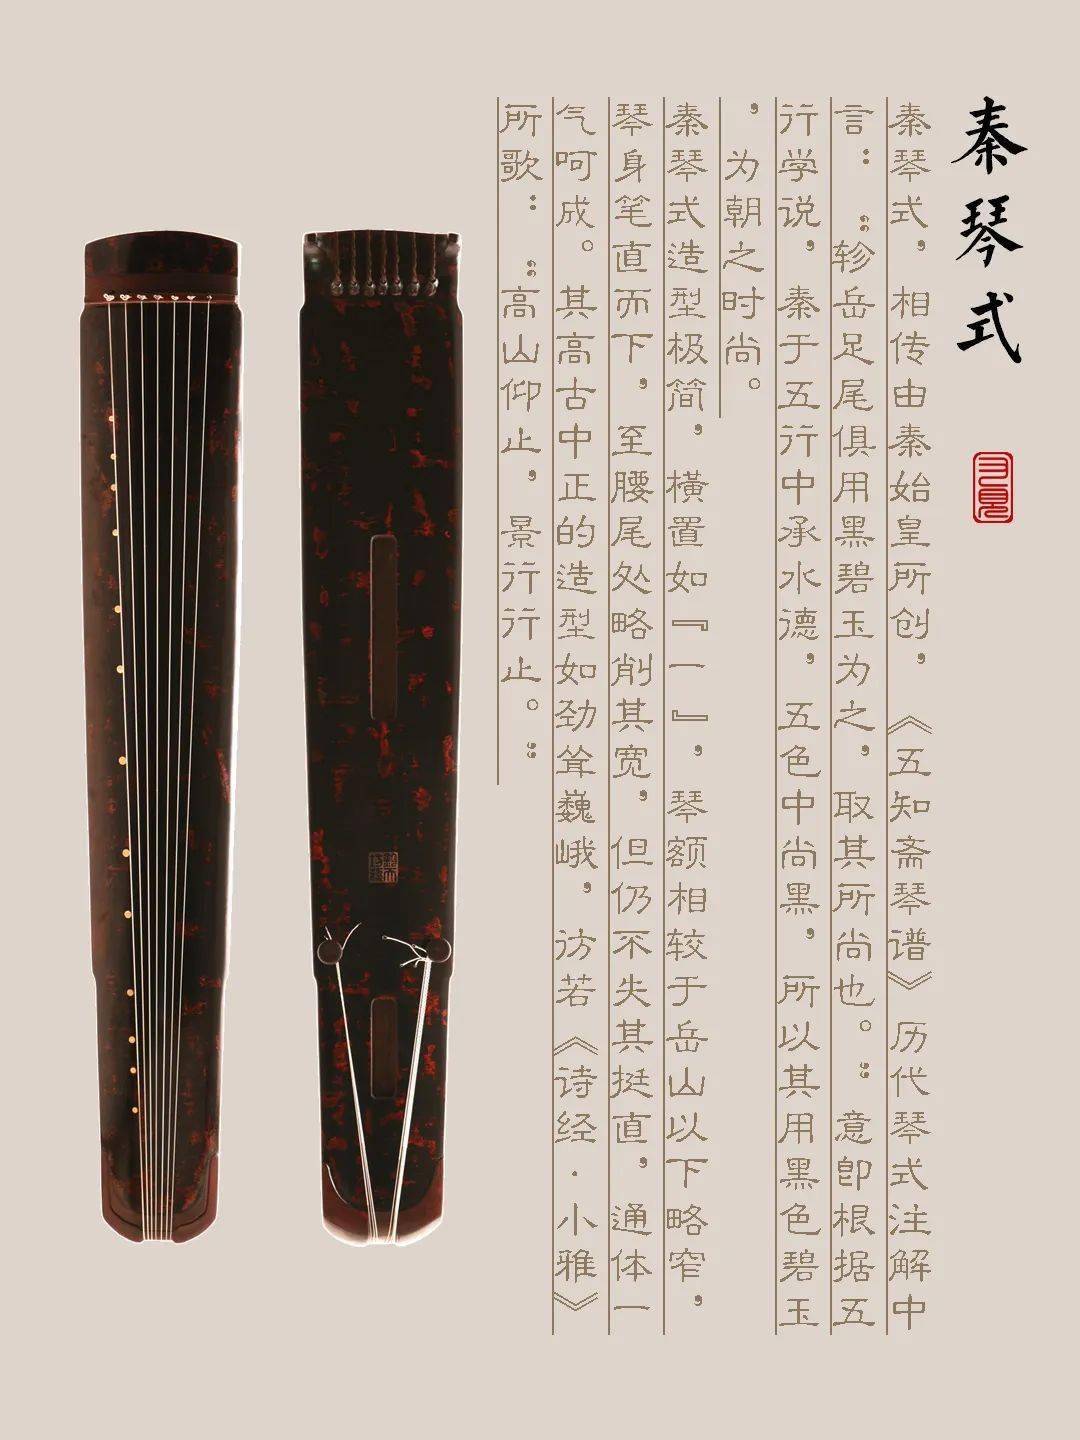 秦琴式
秦琴式，相传由秦始皇所创，《五知斋琴谱》历代琴式注解中
言：“轸岳足尾俱用黑碧玉为之，取其所尚也。”意即根据五
行学说，秦于五行中承水德，五色中尚黑，所以其用黑色碧玉
，为朝之时尚。
秦琴式造型极简，横置如『一』，琴额相较于岳山以下略窄，
琴身笔直而下，至腰尾处略削其宽，但仍不失其挺直，通体一
气呵成。其高古中正的造型如劲耸巍峨，访若《诗经·小雅》
所歌：“高山仰止，景行行止。”